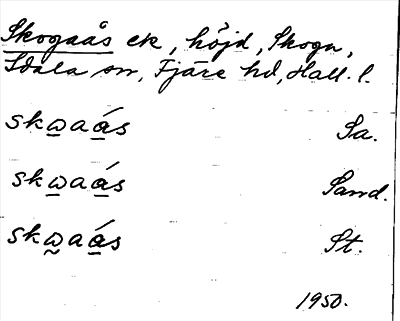 Skogaås ek, höjd, Skogn,
Idala sn, Fjäre hd, Hall. l.
skωaás Sa.
skωaás Sand.
skωaás St.
1950.